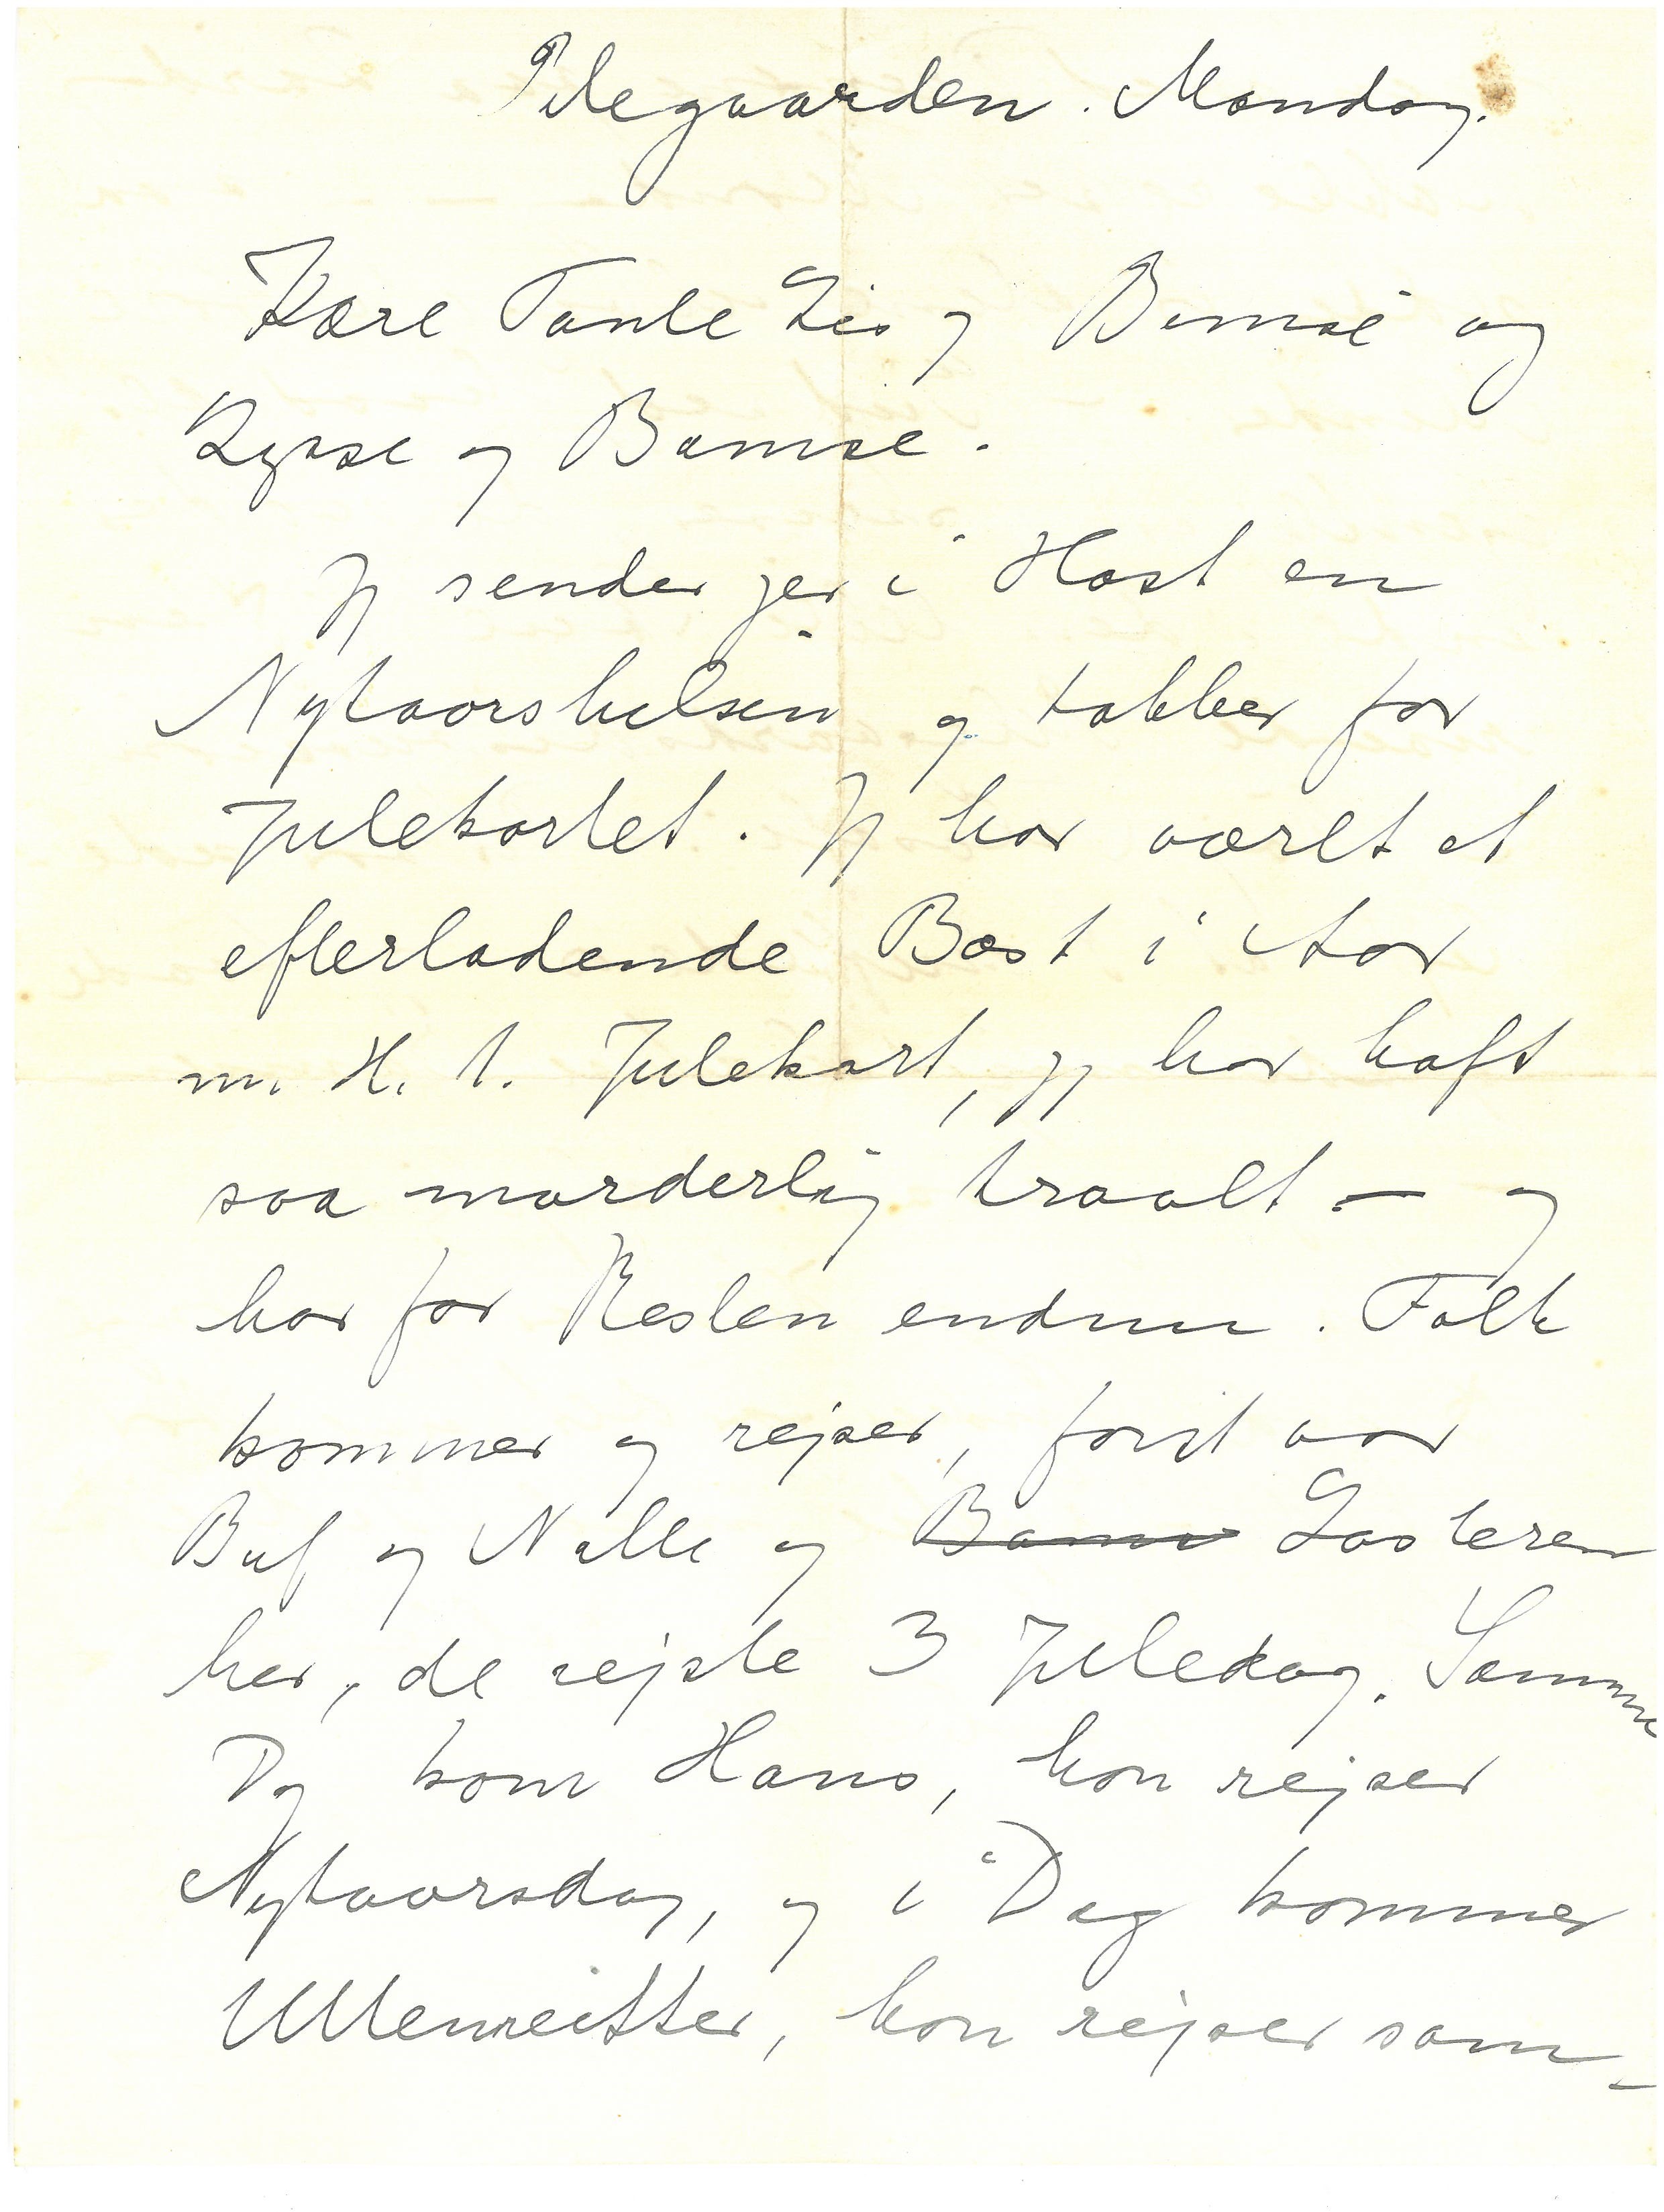 Pilegaarden. Mandag.
Kære Tante Lis og Bimse og
Kysse og Bamse.
Jeg sender jer i Hast en
Nytaarshilsen og takker for
Julekortet. Jeg har været et
efterladende Bæst i Aar
m. H. t. Julekort, jeg har haft
saa morderlig travlt — og
har for Resten endnu. Folk
kommer og rejser, først var
Buf og Nalle og Lasteren
her, de rejste 3 Juledag. Samme
Dag kom Hans, han rejser
Nytaarsdag, og i Dag kommer
Ullenreitter, han rejser sam-